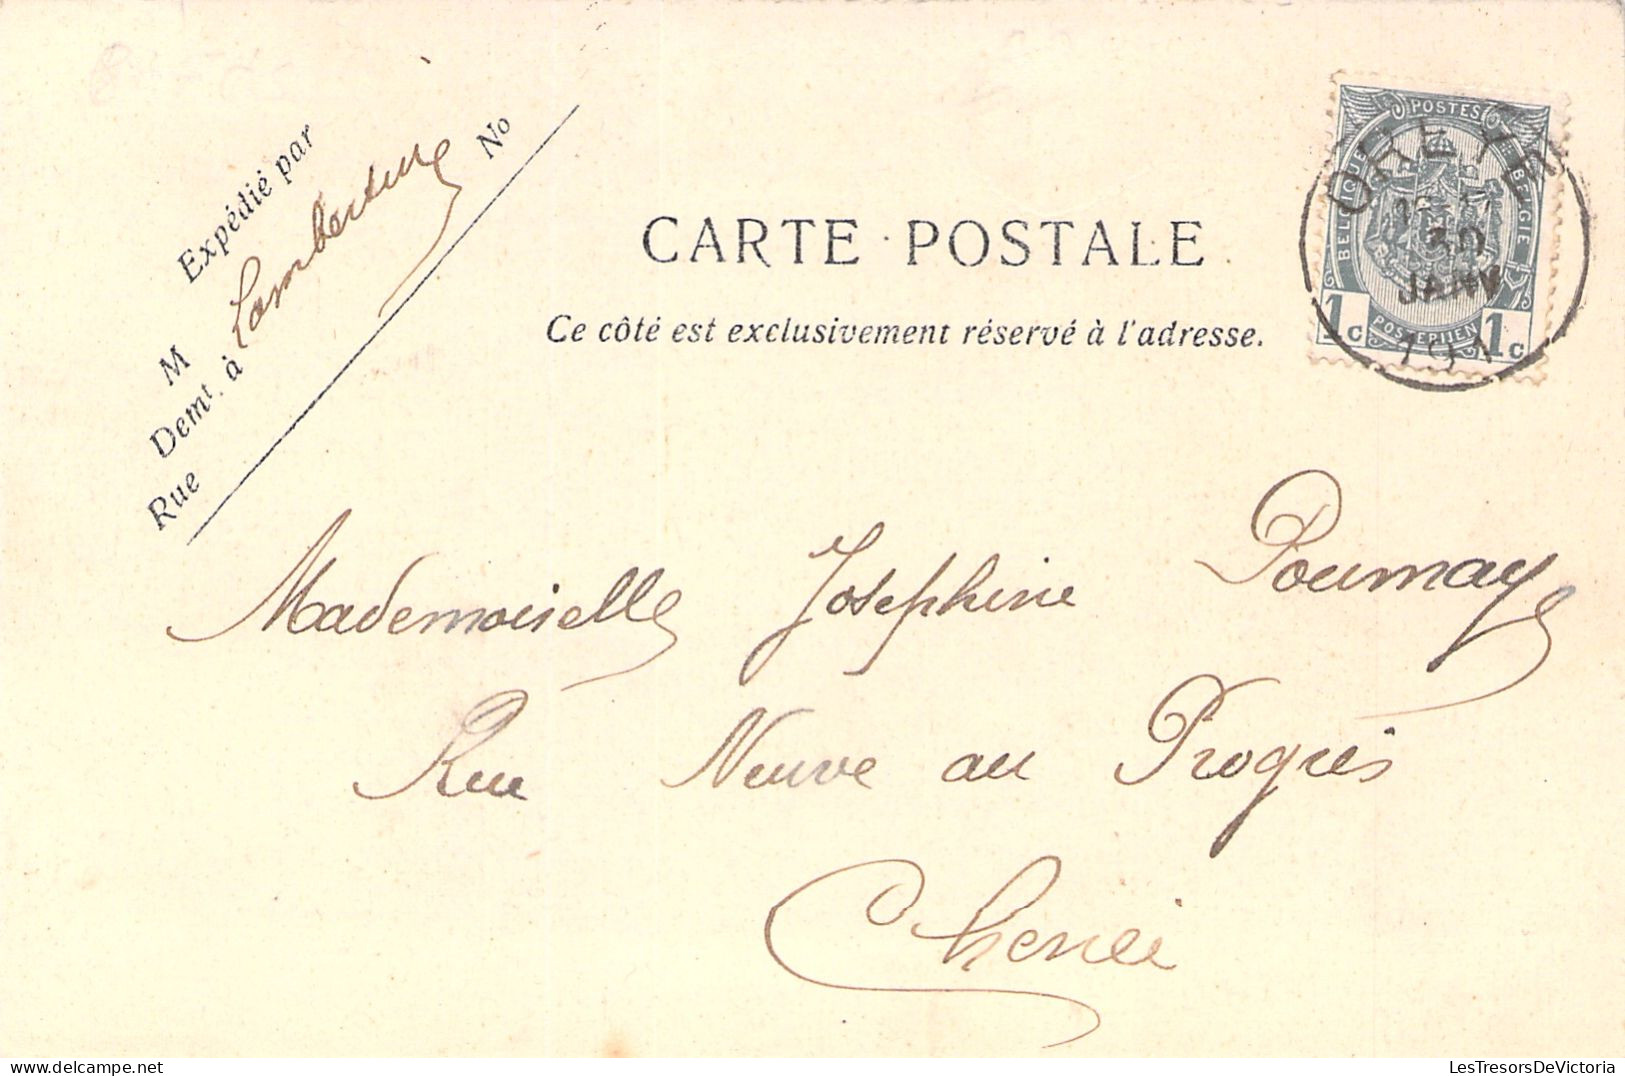 Expédié par
M
Demt. à Lambertine
Rue
No
CARTE POSTALE
Ce côté est exclusivement réservé à l'adresse.
POSTES
BELGIQUE BELGIË
POSTERIJEN
1c 1c
OREYE
30
JANV
191
Mademoiselle Josephine Poumay
Rue Neuve au Progrès
Cheneé
LesTresorsDeVictoria